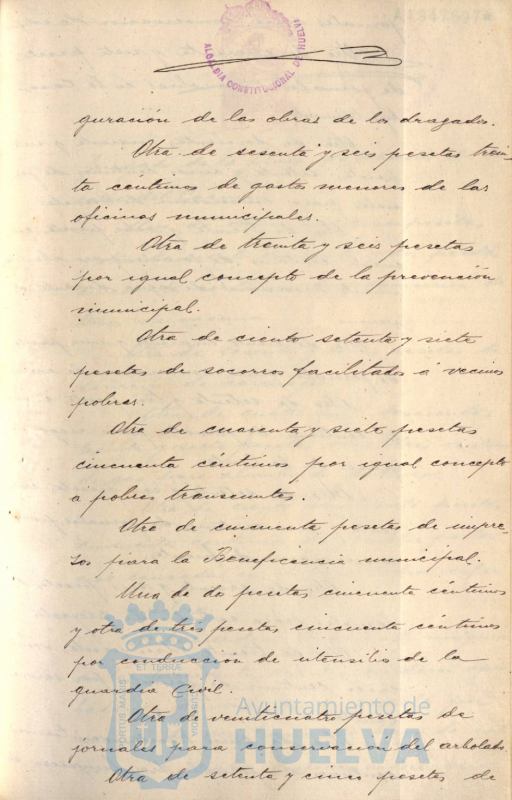 ALCALDIA CONSTITUCIONAL DE HUELVA
guración de las obras de los dragados.
Otra de sesenta y seis pesetas trein-
ta centimos de gastos menores de las
oficinas municipales.
Otra de treinta y seis pesetas
por igual concepto de la prevención
municipal.
Otra de ciento setenta y siete
pesetas de socorros facilitados á vecinos
pobres.
Otra de cuarenta y siete pesetas
cincuenta céntimos por igual concepto
á pobres transeuntes.
Otra de cincuenta pesetas de impre-
sos para la Beneficencia municipal.
Una de dos pesetas cincuenta céntimos
y otra de tres pesetas cincuenta céntimos
por conducción de utensilio de la
guardia Civil.
Otra de veinticuatro pesetas de
jornales para conservación del arbolado.
Otra de setenta y cinco pesetas de
PORTUS MARIS ET TERRAE CUSTODIA
Ayuntamiento de
HUELVA